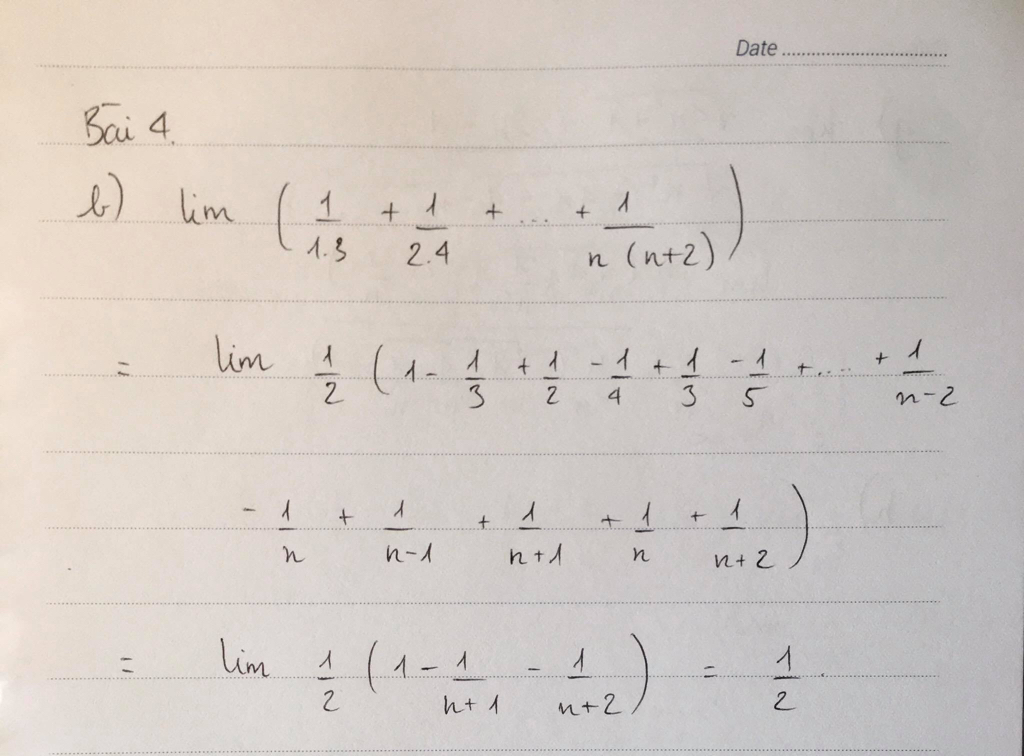 Date
Bài 4.
b) lim ( 1/1.3 + 1/2.4 + ... + 1/n (n+2) )
= lim 1/2 ( 1 - 1/3 + 1/2 - 1/4 + 1/3 - 1/5 + .... + 1/n-2
- 1/n + 1/n-1 + 1/n+1 + 1/n + 1/n+2 )
= lim 1/2 ( 1 - 1/n+1 - 1/n+2 ) = 1/2.